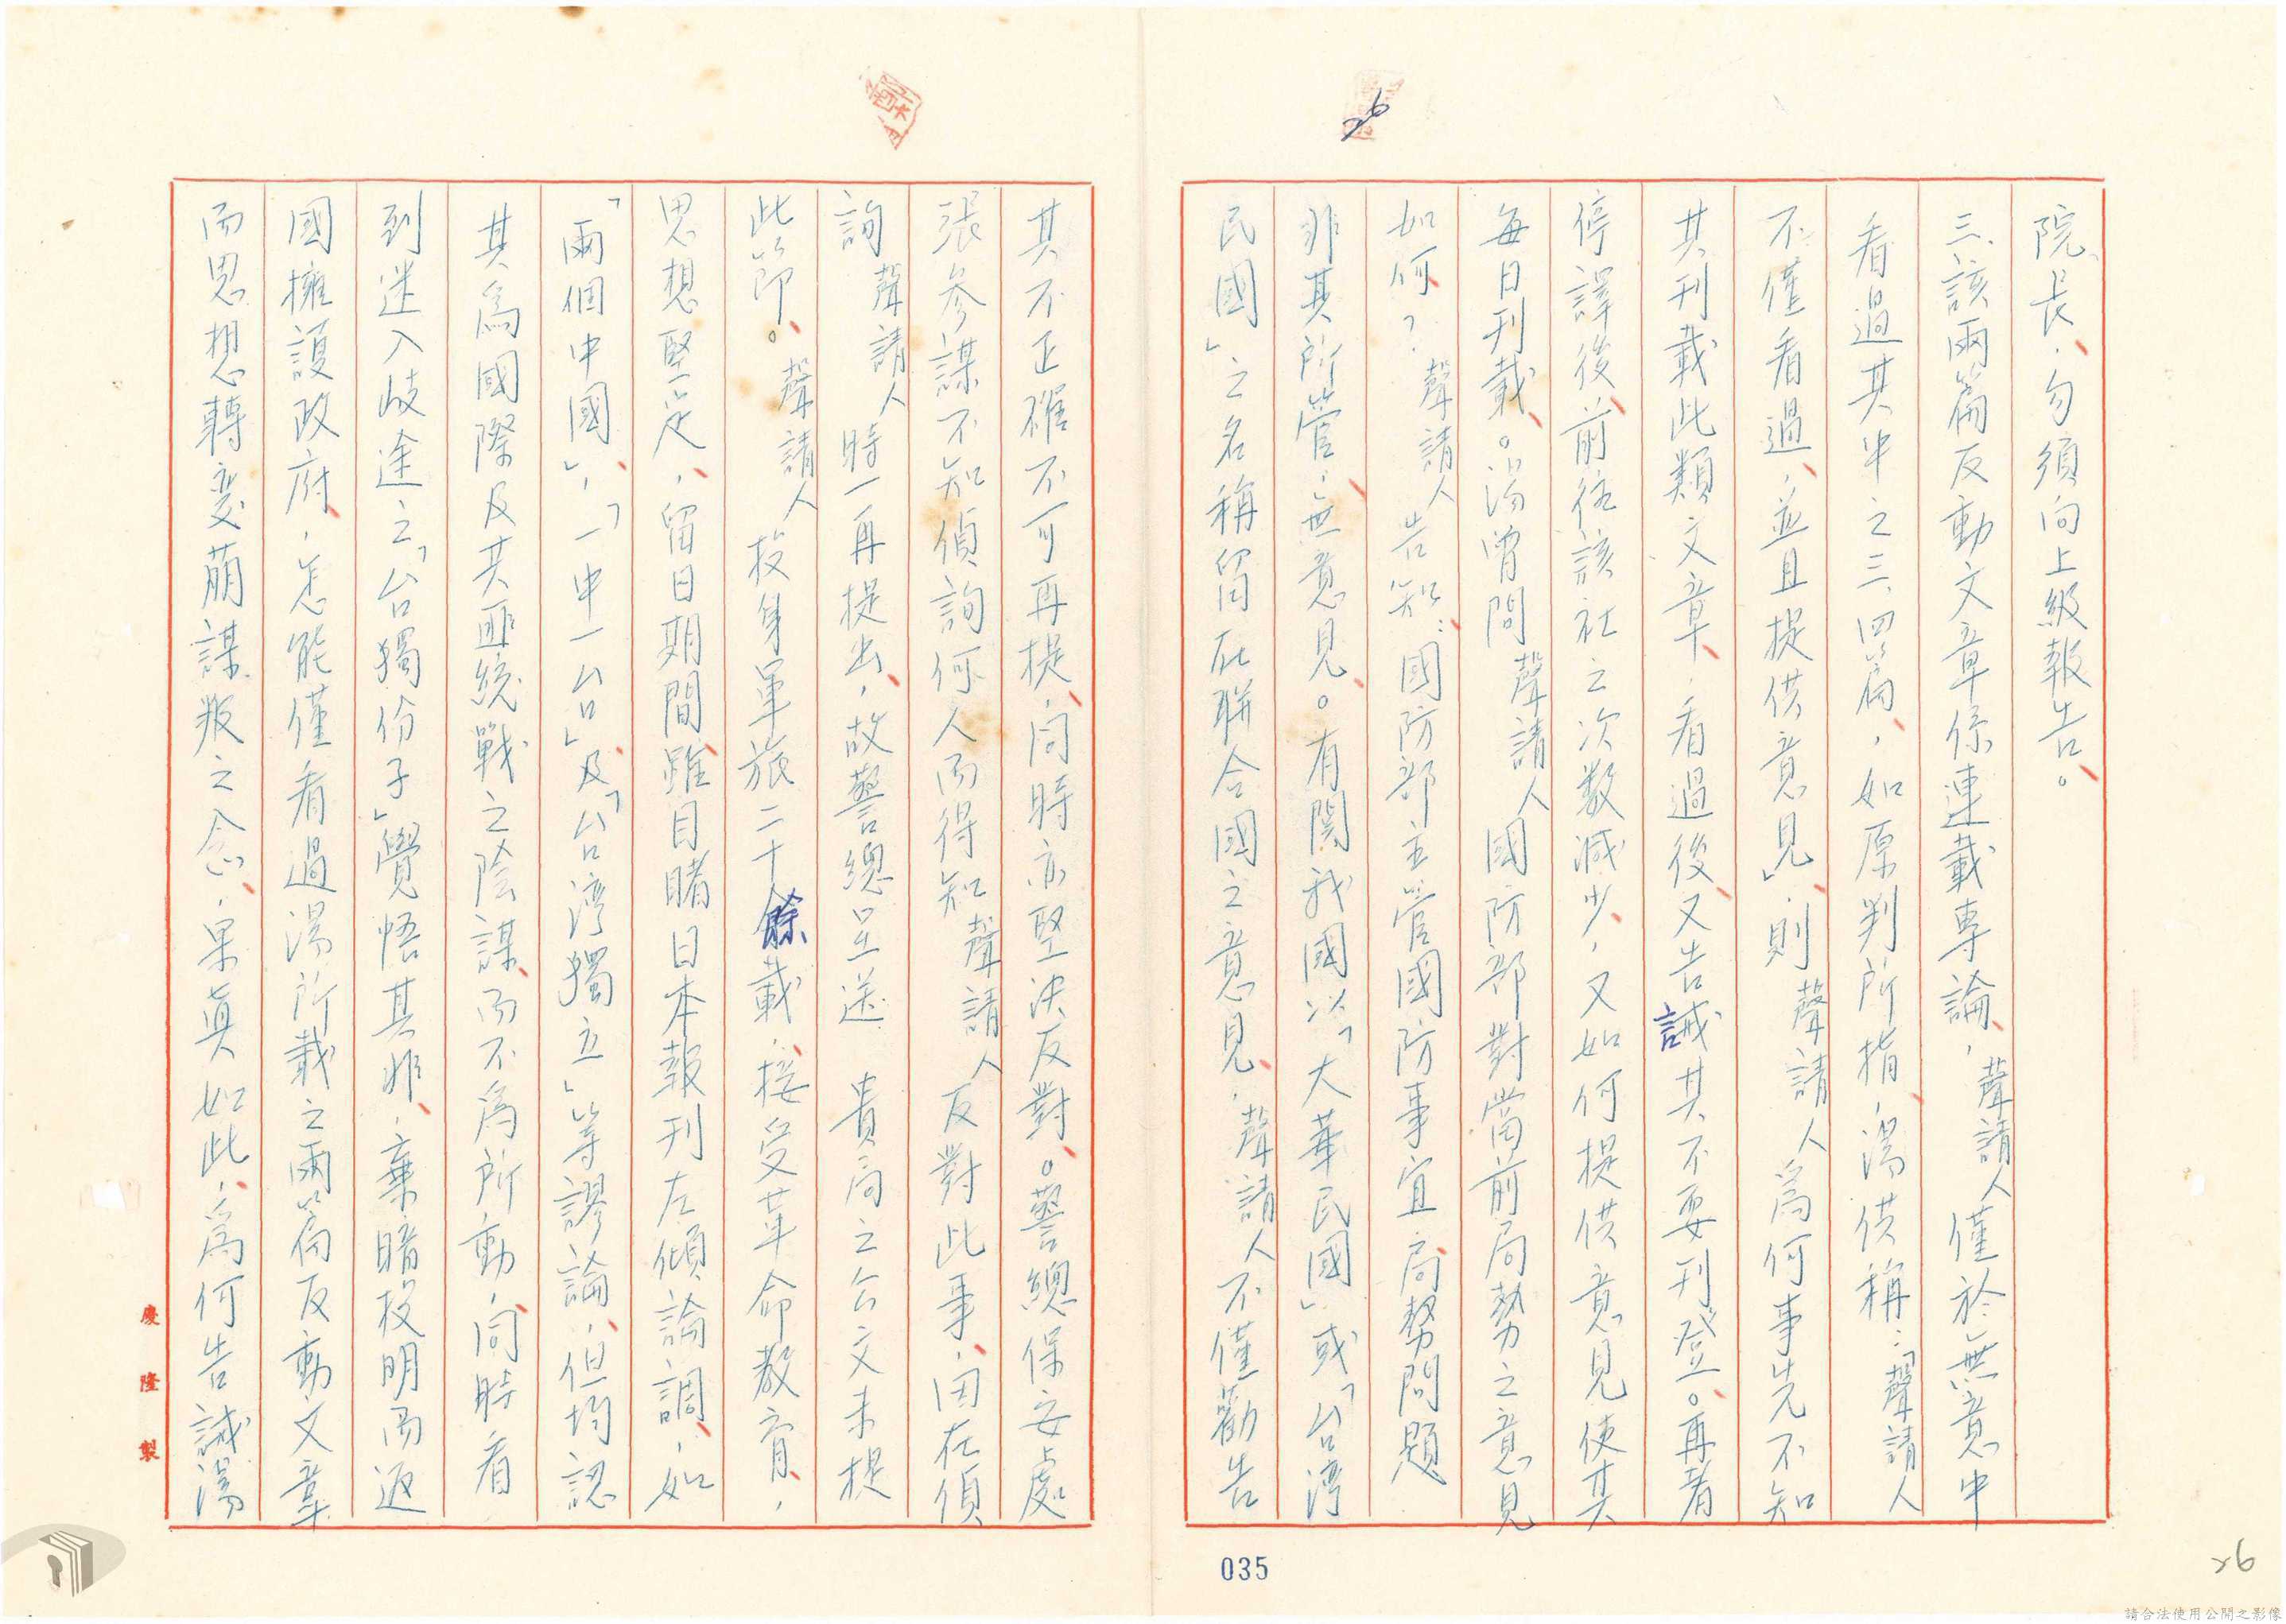 院長，勿須向上級報告。
三、該兩篇反動文章係連載專論，聲請人僅於無意中
看過其中之三、四篇，如原判所指，湯供稱：「聲請人
不僅看過，並且提供意見」，則聲請人為何事先不知
其刊載此類文章，看過後又告誡其不要刊登。再者
停譯後前往該社之次数減少，又如何提供意見使其
每日刊載。湯曾問聲請人國防部對當前局勢之意見
如何？聲請人告知：國防部主管國防事宜局勢問題
非其所管，無意見。有関我國以「大華民國」或「台湾
民國」之名稱留在聯合國之意見，聲請人不僅勸告
其不正確不可再提，同時亦堅決反對。警總保安處
張参謀不知偵詢何人而得知聲請人反對此事，因在偵
詢聲請人時一再提出，故警總呈送 貴局之公文未提
此節。聲請人投身軍旅二十餘載，接受革命教育，
思想堅定，留日期間雖目睹日本報刊左傾論調，如
「兩個中國」，「一中一台」及「台湾獨立」等謬論，但均認
其為國際及共匪統戰之陰謀，而不為所動，同時看
到迷入歧途之「台獨份子」覺悟其非，棄暗投明而返
國擁護政府，怎能僅看過湯所載之兩篇反動文章
而思想轉变萌謀叛之念，果真如此，為何告誡湯
慶隆製
035
26
26
請合法使用公開之影像